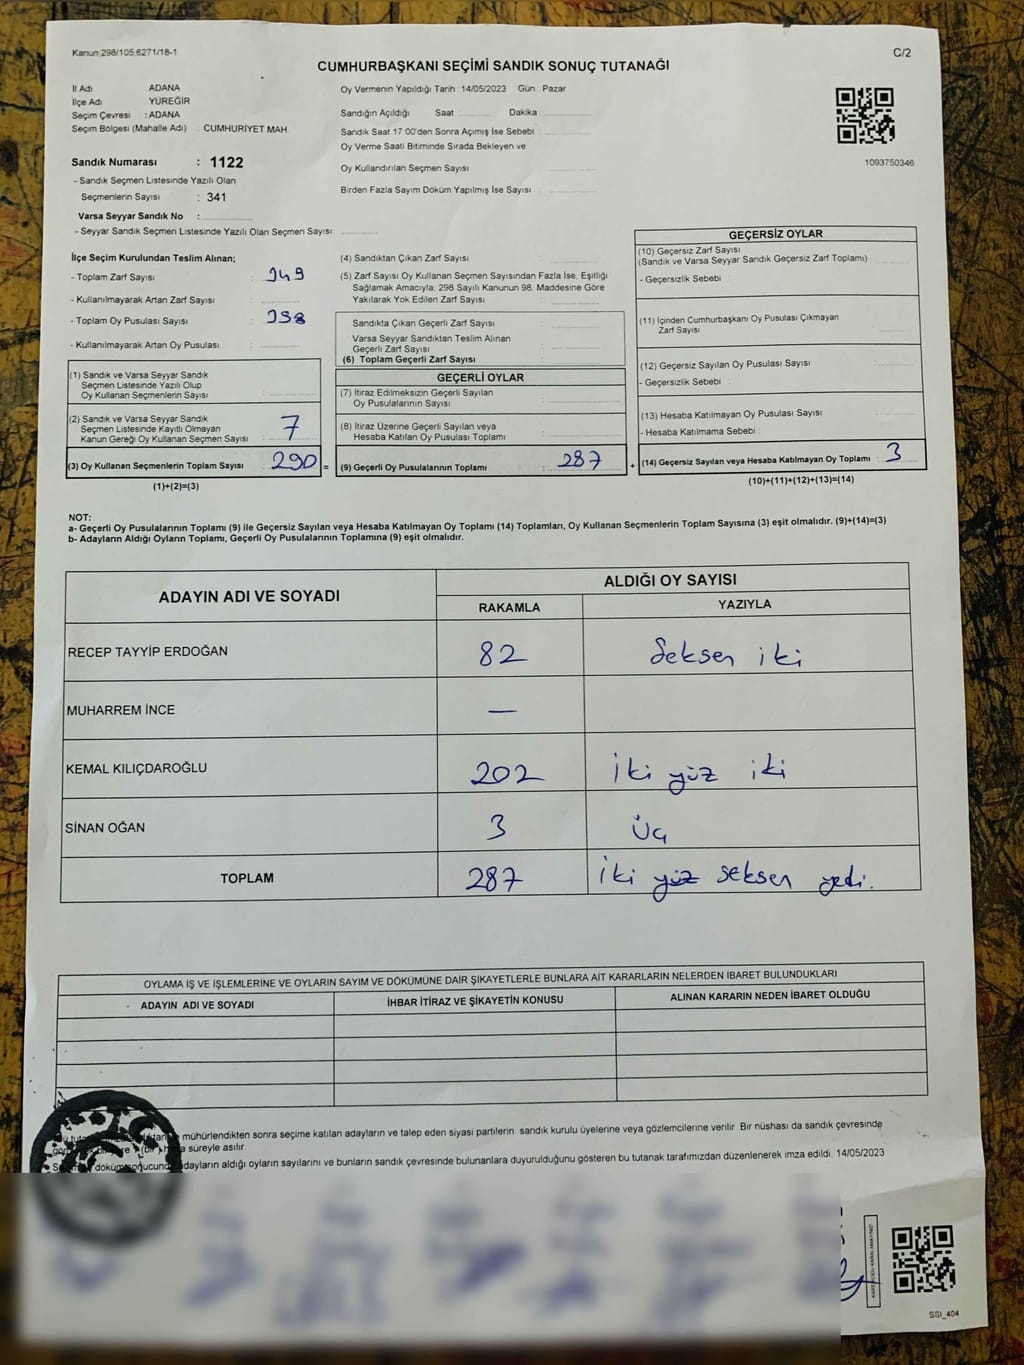 Kanun 298/105 6271/18-1
C/2
CUMHURBAŞKANI SEÇİMİ SANDIK SONUÇ TUTANAĞI
İl Adı ADANA
İlçe Adı YÜREĞİR
Seçim Çevresi : ADANA
Seçim Bölgesi (Mahalle Adı) : CUMHURİYET MAH
Sandık Numarası : 1122
- Sandık Seçmen Listesinde Yazılı Olan
Seçmenlerin Sayısı : 341
Varsa Seyyar Sandık No :
- Seyyar Sandık Seçmen Listesinde Yazılı Olan Seçmen Sayısı:
Oy Vermenin Yapıldığı Tarih : 14/05/2023 Gün : Pazar
Sandığın Açıldığı Saat Dakika
Sandık Saat 17 00'den Sonra Açımış İse Sebebi :
Oy Verme Saati Bitiminde Sırada Bekleyen ve
Oy Kullandırılan Seçmen Sayısı
Birden Fazla Sayım Döküm Yapılmış İse Sayısı :
1093750346
İlçe Seçim Kurulundan Teslim Alınan;
- Toplam Zarf Sayısı : 349
- Kullanılmayarak Artan Zarf Sayısı :
- Toplam Oy Pusulası Sayısı : 358
- Kullanılmayarak Artan Oy Pusulası :
(1) Sandık ve Varsa Seyyar Sandık
Seçmen Listesinde Yazılı Olup
Oy Kullanan Seçmenlerin Sayısı
(2) Sandık ve Varsa Seyyar Sandık
Seçmen Listesinde Kayıtlı Olmayan
Kanun Gereği Oy Kullanan Seçmen Sayısı : 7
(3) Oy Kullanan Seçmenlerin Toplam Sayısı : 290 =
(1)+(2)=(3)
(4) Sandıktan Çıkan Zarf Sayısı :
(5) Zarf Sayısı Oy Kullanan Seçmen Sayısından Fazla İse, Eşitliği
Sağlamak Amacıyla; 298 Sayılı Kanunun 98. Maddesine Göre
Yakılarak Yok Edilen Zarf Sayısı :
Sandıkta Çıkan Geçerli Zarf Sayısı :
Varsa Seyyar Sandıktan Teslim Alınan
Geçerli Zarf Sayısı :
(6) Toplam Geçerli Zarf Sayısı :
GEÇERLİ OYLAR
(7) İtiraz Edilmeksizin Geçerli Sayılan
Oy Pusulalarının Sayısı :
(8) İtiraz Üzerine Geçerli Sayılan veya
Hesaba Katılan Oy Pusulası Toplamı :
(9) Geçerli Oy Pusulalarının Toplamı : 287 +
GEÇERSİZ OYLAR
(10) Geçersiz Zarf Sayısı
(Sandık ve Varsa Seyyar Sandık Geçersiz Zarf Toplamı) :
- Geçersizlik Sebebi :
(11) İçinden Cumhurbaşkanı Oy Pusulası Çıkmayan
Zarf Sayısı :
(12) Geçersiz Sayılan Oy Pusulası Sayısı :
- Geçersizlik Sebebi :
(13) Hesaba Katılmayan Oy Pusulası Sayısı :
- Hesaba Katılmama Sebebi :
(14) Geçersiz Sayılan veya Hesaba Katılmayan Oy Toplamı : 3
(10)+(11)+(12)+(13)=(14)
NOT:
a- Geçerli Oy Pusulalarının Toplamı (9) ile Geçersiz Sayılan veya Hesaba Katılmayan Oy Toplamı (14) Toplamları, Oy Kullanan Seçmenlerin Toplam Sayısına (3) eşit olmalıdır. (9)+(14)=(3)
b- Adayların Aldığı Oyların Toplamı, Geçerli Oy Pusulalarının Toplamına (9) eşit olmalıdır.
ADAYIN ADI VE SOYADI ALDIĞI OY SAYISI
RAKAMLA YAZIYLA
RECEP TAYYİP ERDOĞAN 82 Seksen iki
MUHARREM İNCE —
KEMAL KILIÇDAROĞLU 202 İki yüz iki
SİNAN OĞAN 3 Üç
TOPLAM 287 İki yüz seksen yedi.
OYLAMA İŞ VE İŞLEMLERİNE VE OYLARIN SAYIM VE DÖKÜMÜNE DAİR ŞİKAYETLERLE BUNLARA AİT KARARLARIN NELERDEN İBARET BULUNDUKLARI
ADAYIN ADI VE SOYADI İHBAR İTİRAZ VE ŞİKAYETİN KONUSU ALINAN KARARIN NEDEN İBARET OLDUĞU
mühürlendikten sonra seçime katılan adayların ve talep eden siyasi partilerin sandık kurulu üyelerine veya gözlemcilerine verilir Bir nüshası da sandık çevresinde
süreyle asılır
adayların aldığı oyların sayılarını ve bunların sandık çevresinde bulunanlara duyurulduğunu gösteren bu tutanak tarafımızdan düzenlenerek imza edildi. 14/05/2023
SSI_404